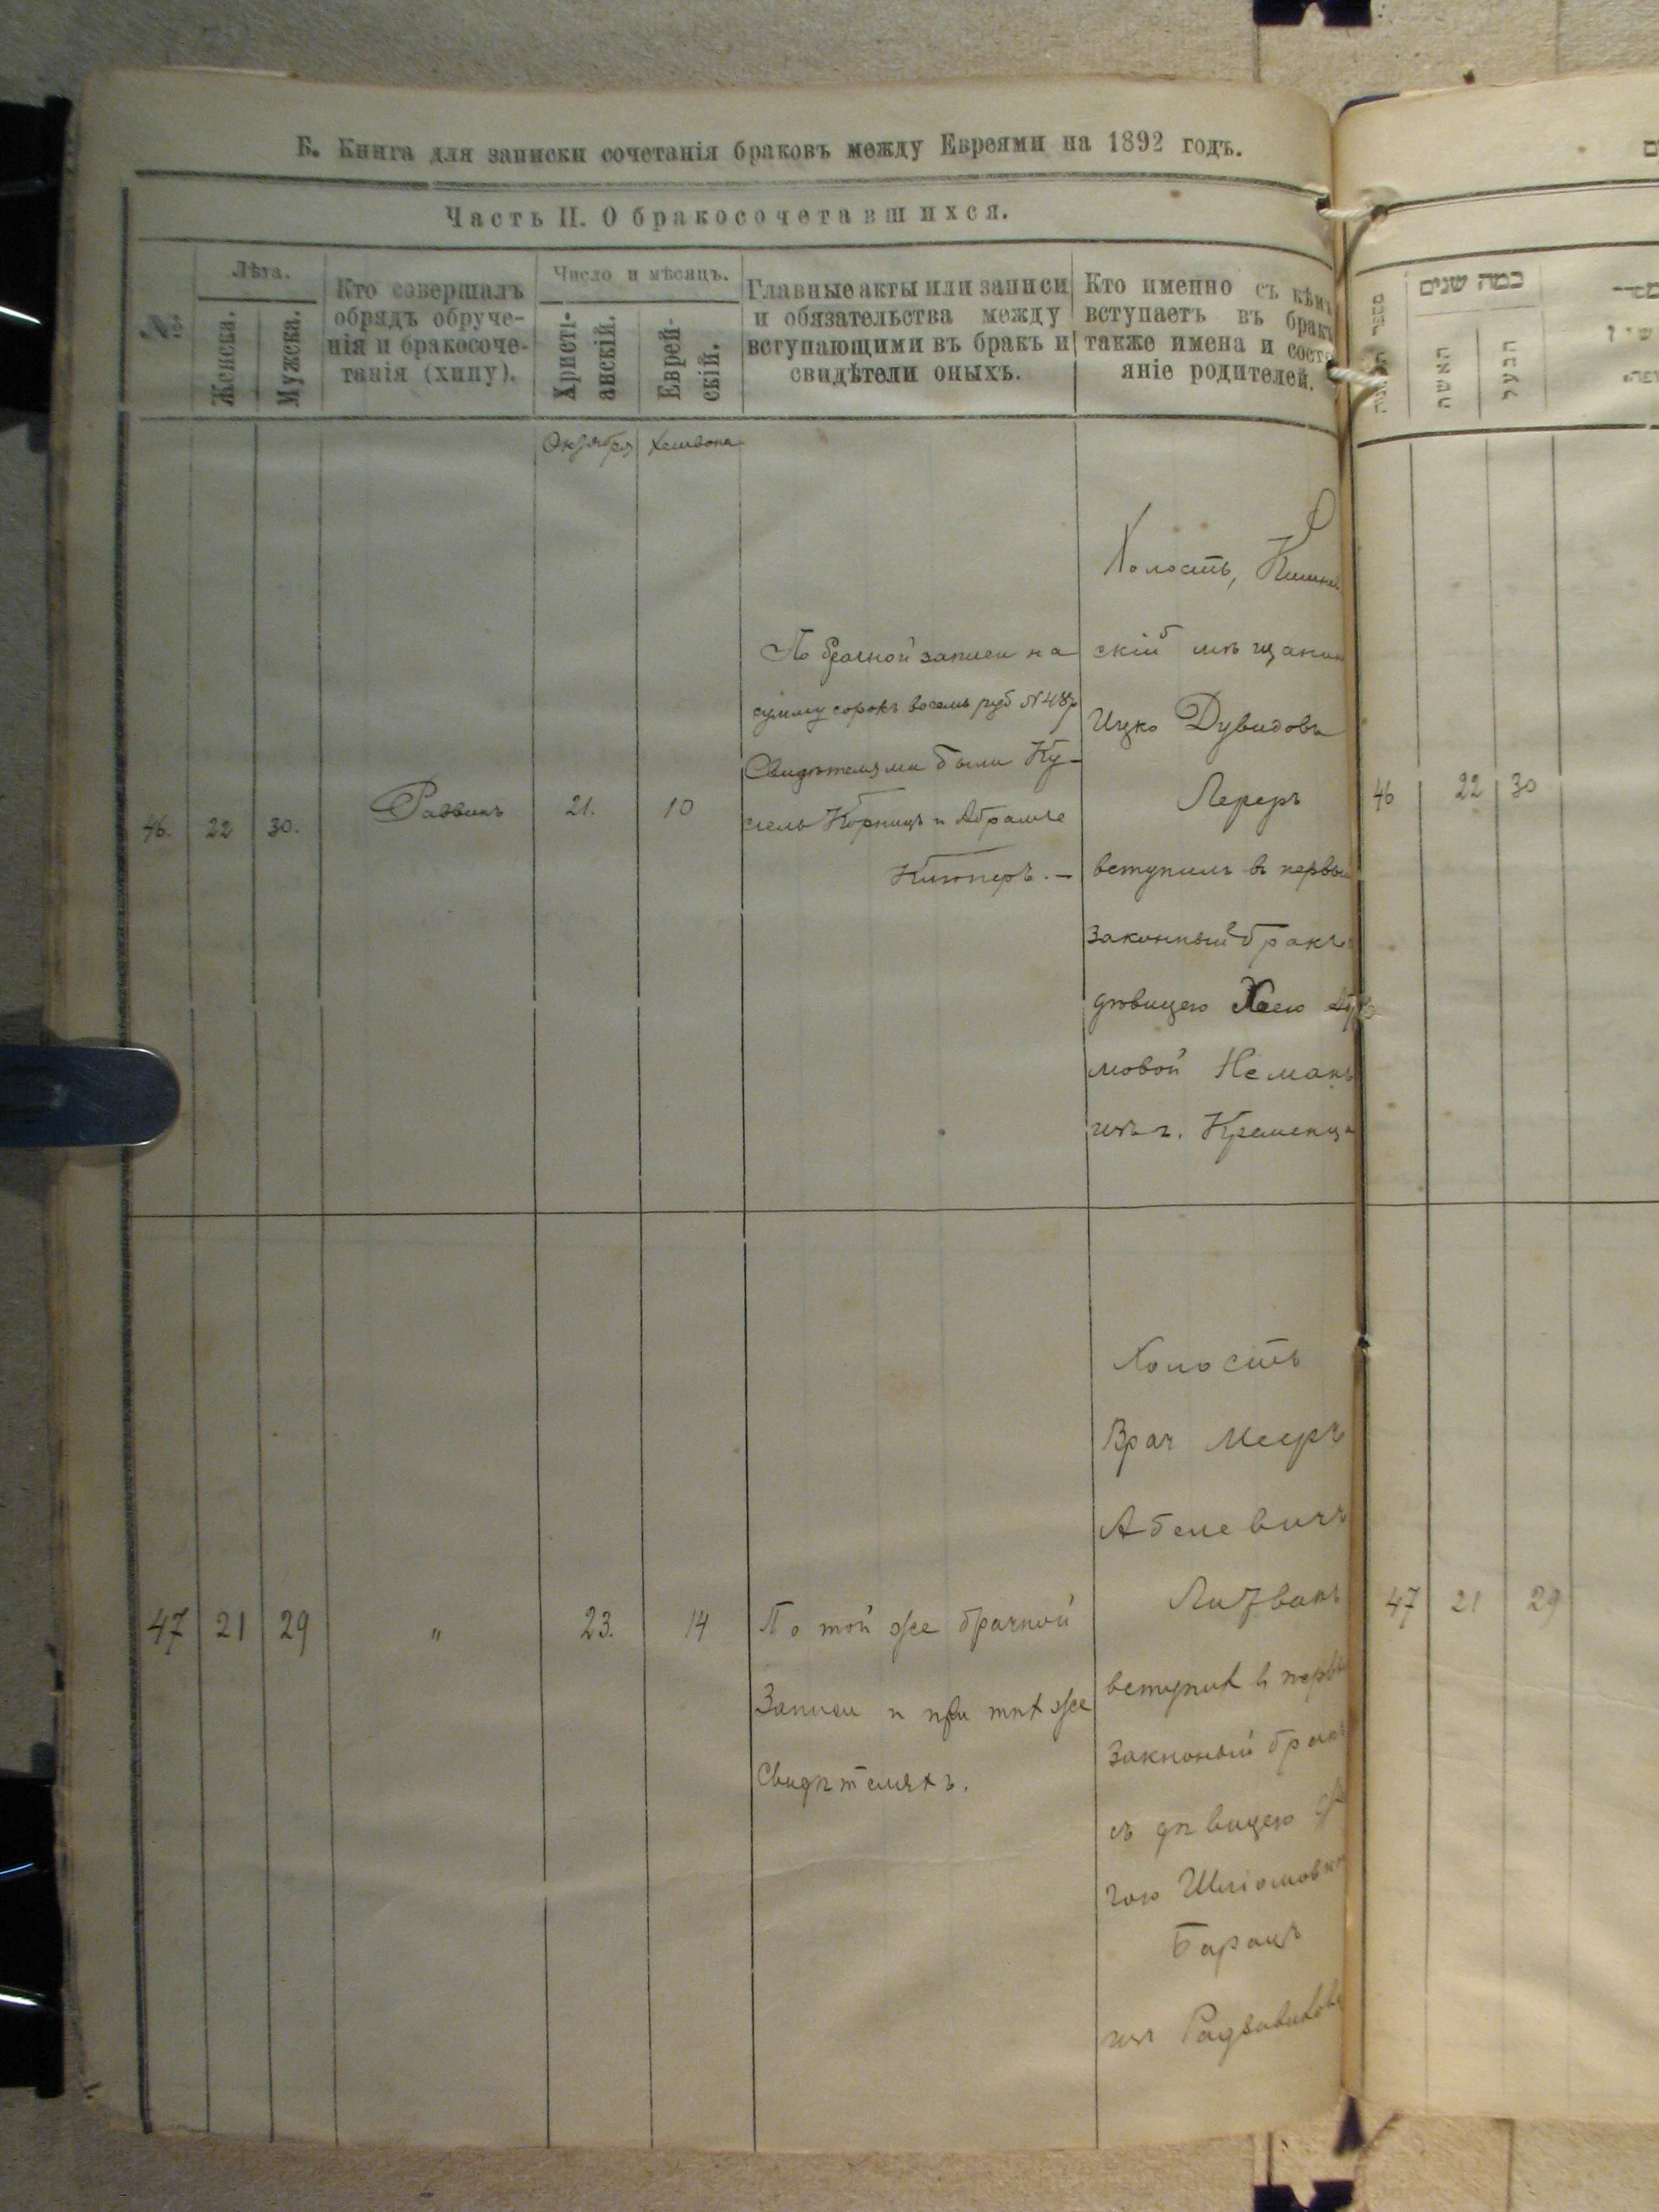 Б. Книга для записки сочетанія браковъ между Евреями на 1892 годъ.
Часть II. О бракосочетавшихся.
№
Лѣта.
Женска.
Мужска.
Кто совершалъ
обрядъ обруче-
нія и бракосоче-
танія (хипу).
Число и мѣсяцъ.
Христі-
анскій.
Еврей-
скій.
Главные акты или записи
и обязательства между
вступающими въ бракъ и
свидѣтели оныхъ.
Кто именно съ кѣмъ
вступаетъ въ бракъ
также имена и состо
яніе родителей.
Октября
Хешвона
46.
22
30.
Раввинъ
21.
10
По брачной записи на
сумму сорокъ восемь руб №48р
Свидѣтелями были Ку-
сіель Корницъ и Абрамче
Клиперъ. –
Холостъ,
скій мѣщанин
Ицко Дувидовъ
Лереръ
вступилъ въ первый
законный бракъ
дѣвицею Хаею
мовой Неманъ
изъ г. Кременца
47
21
29
"
23.
14
По той же брачной
Записи и при тѣх же
Свидѣтеляхъ.
Холостъ
Врач Мееръ
Абелевичъ
Литвакъ
вступил в первы
Закноный бракъ
съ дѣвицею
гою Шліомовно
Барацъ
изъ Радзивилова
כמה שנים
האשה
הבעל
46
22
30
47
21
29